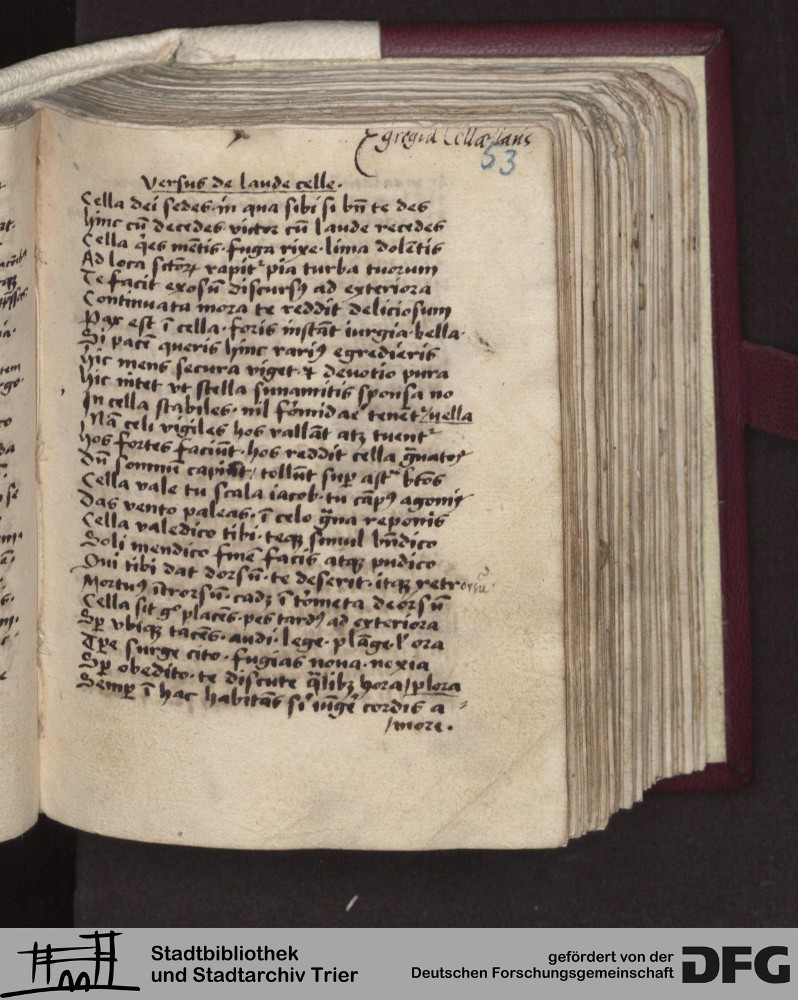 Egregia Cellae laus
53
Versus de laude celle.
Cella dei sedes in qua sibi si bn̄ te des
hinc cū decedes victor cū laude recedes
Cella q̇es mētis fuga rixe lima dolētis
Ad loca sctōꝝ rapitᷣ pia turba tuorum
Te facit exosū discursꝰ ad exteriora
Continuata mora te reddit deliciosum
Pax est ī cella foris instāt iurgia bella
Si pacē queris hinc rariꝰ egredieris
hic mens secura viget ⁊ devotio pura
hic nitet vt stella sunamitis sponsa no
In cella stabiles nil fōmidāe tenētᷣ/vella
Nā celi vigiles hos vallāt atꝫ tuentᷣ
hos fortes faciūt hos reddit cella
Dū somnū capiūt/ tollūt suꝑ astᷓ btōs
Cella vale tu scala iacob tu cāpꝰ agonis
Das vento paleas ī celo gᷓna reponis
Cella valedico tibi teqꝫ simul bn̄dico
Soli mendico fine facis atqꝫ pudico
Qui tibi dat dorsū te deserit itqꝫ retrorsū
Mortuꝰ ītrorsū cadꝫ ī tōmeta deorsū
Cella sit gͦ placēs pes tardꝰ ad exteriora
Sꝑ vbiqꝫ tacēs audi lege plāge lͥ ora
Tꝑe surge cito fugias noua nexia
Sꝑ obedito te discute q̄libꝫ hora/plora
Semꝑ ī hac habitās cordis a
/more.
Stadtbibliothek
und Stadtarchiv Trier
gefördert von der
Deutschen Forschungsgemeinschaft
DFG